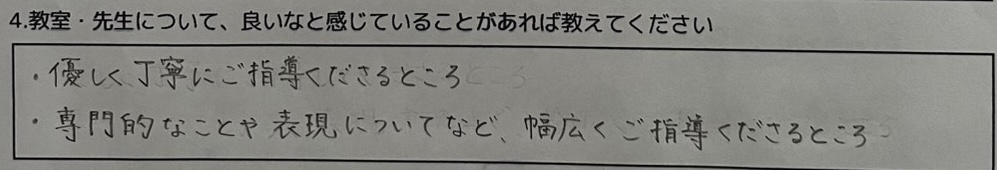 4.教室・先生について、良いなと感じていることがあれば教えてください
・優しく丁寧にご指導くださるところ
・専門的なことや表現についてなど、幅広くご指導くださるところ